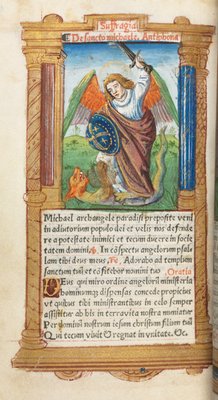 Suffragia
De sancto michaele. Antiphona
Michael archangele paradisi preposite veni
in adiutorium populo dei et velis nos defende
re a potestate inimici et tecum ducere in socie
tatem domini. ꝟ. In cōspectu angelorum psal
lam tibi deus meus. ℞. Adorabo ad templum
sanctum tuū et cōfitebor nomini tuo Oratio
DEus qui miro ordine angelorū ministeria
hominūmꝗ dispensas concede propicius
vt quibus tibi ministrantibus in celo semper
assistitur ab his in terra vita nostra muniatur
Per dominū nostrum iesum christum filium tuū
Qui tecum viuit & regnat in vnitate. &c.